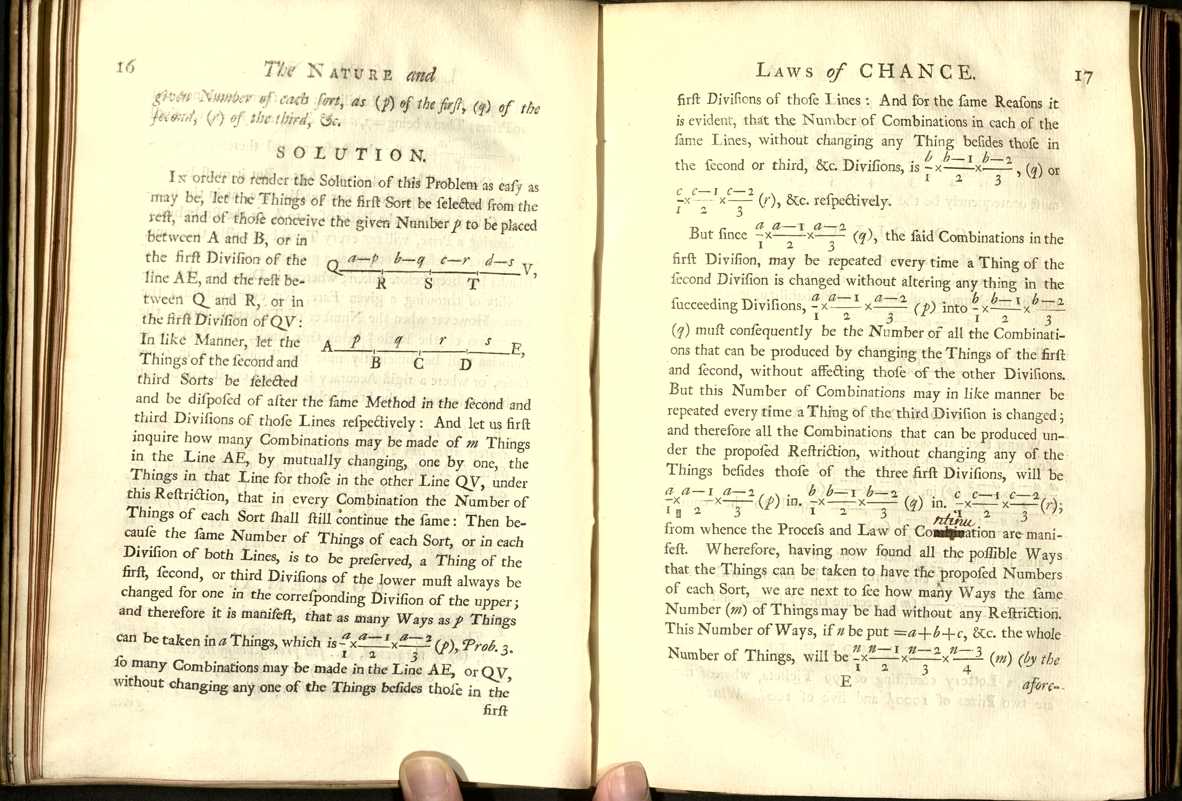 16
The NATURE and
given Number of each ſort, as (p) of the firſt, (q) of the
ſecond, (r) of the third, &c.
SOLUTION.
In order to render the Solution of this Problem as eaſy as
may be, let the Things of the firſt Sort be ſelected from the
reſt, and of thoſe conceive the given Number p to be placed
between A and B, or in
the firſt Diviſion of the
line AE, and the reſt be-
tween Q and R, or in
the firſt Diviſion of QV:
In like Manner, let the
Things of the ſecond and
third Sorts be ſelected
a—p b—q c—r d—s
Q V,
R S T
p q r s
A E,
B C D
and be diſpoſed of after the ſame Method in the ſecond and
third Diviſions of thoſe Lines reſpectively: And let us firſt
inquire how many Combinations may be made of m Things
in the Line AE, by mutually changing, one by one, the
Things in that Line for thoſe in the other Line QV, under
this Reſtriction, that in every Combination the Number of
Things of each Sort ſhall ſtill continue the ſame: Then be-
cauſe the ſame Number of Things of each Sort, or in each
Diviſion of both Lines, is to be preſerved, a Thing of the
firſt, ſecond, or third Diviſions of the lower muſt always be
changed for one in the correſponding Diviſion of the upper;
and therefore it is manifeſt, that as many Ways as p Things
can be taken in a Things, which is a/1 × a—1/2 × a—2/3 (p), Prob. 3.
ſo many Combinations may be made in the Line AE, or QV,
without changing any one of the Things beſides thoſe in the
firſt
LAWS of CHANCE.
17
firſt Diviſions of thoſe Lines: And for the ſame Reaſons it
is evident, that the Number of Combinations in each of the
ſame Lines, without changing any Thing beſides thoſe in
the ſecond or third, &c. Diviſions, is b/1 × b—1/2 × b—2/3, (q) or
c/1 × c—1/2 × c—2/3 (r), &c. reſpectively.
But ſince a/1 × a—1/2 × a—2/3 (q), the ſaid Combinations in the
firſt Diviſion, may be repeated every time a Thing of the
ſecond Diviſion is changed without altering any thing in the
ſucceeding Diviſions, a/1 × a—1/2 × a—2/3 (p) into b/1 × b—1/2 × b—2/3
(q) muſt conſequently be the Number of all the Combinati-
ons that can be produced by changing the Things of the firſt
and ſecond, without affecting thoſe of the other Diviſions.
But this Number of Combinations may in like manner be
repeated every time a Thing of the third Diviſion is changed;
and therefore all the Combinations that can be produced un-
der the propoſed Reſtriction, without changing any of the
Things beſides thoſe of the three firſt Diviſions, will be
a/1 × a—1/2 × a—2/3 (p) in. b/1 × b—1/2 × b—2/3 (q) in. c/1 × c—1/2 × c—2/3 (r);
ntinu
from whence the Proceſs and Law of Combination are mani-
feſt. Wherefore, having now found all the poſſible Ways
that the Things can be taken to have the propoſed Numbers
of each Sort, we are next to ſee how many Ways the ſame
Number (m) of Things may be had without any Reſtriction.
This Number of Ways, if n be put =a+b+c, &c. the whole
Number of Things, will be n/1 × n—1/2 × n—2/3 × n—3/4 (m) (by the
E
afore-